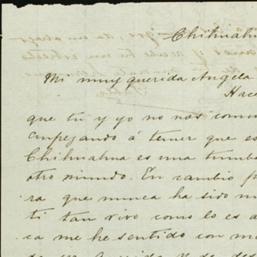 Chihuahu
Mi muy querida Angela
Hace
que tú y yo no nos comu
empezando á temer que es
Chihuahua es una tumba
otro mundo. En cambio p
ra que nunca ha sido m
ti tan vivo como lo es a
ca me he sentido con m